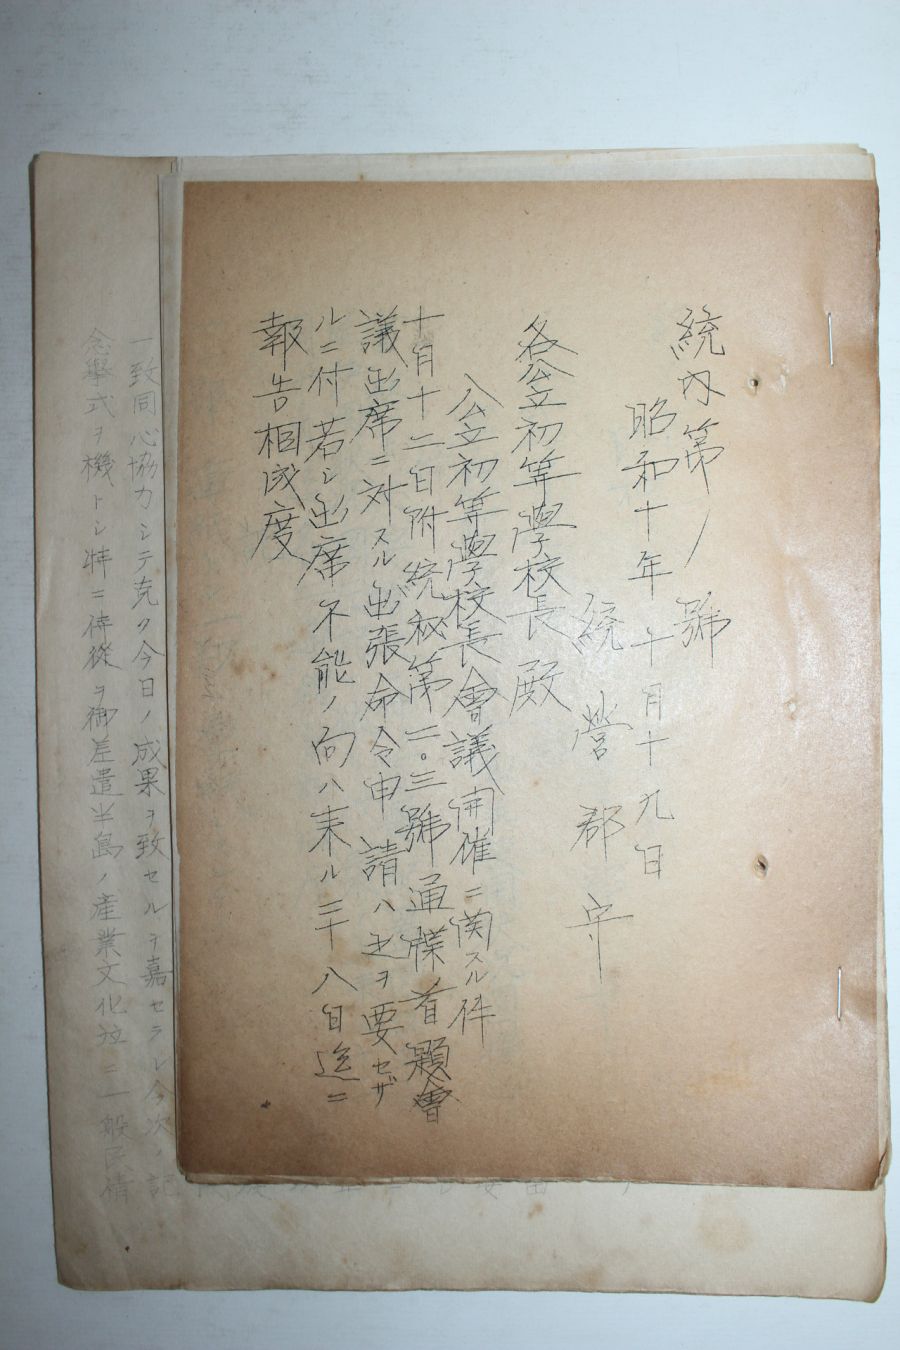 統内第ノ號
昭和十年十月十九日
統營郡守
各公立初等學校長殿
公立初等學校長會議開催ニ関スル件
十月十二日附統秘第二〇三號通牒首題會
議出席ニ対スル出張命令申請ハ之ヲ要セザ
ルニ付若シ出席不能ノ向ハ来ル二十八日迄ニ
報告相成度
一致同心協力シテ克ク今日ノ成果ヲ致セルヲ嘉セラレ今次ノ記
念擧式ヲ機トシ特ニ侍從ヲ御差遣半島ノ產業文化竝ニ一般民情